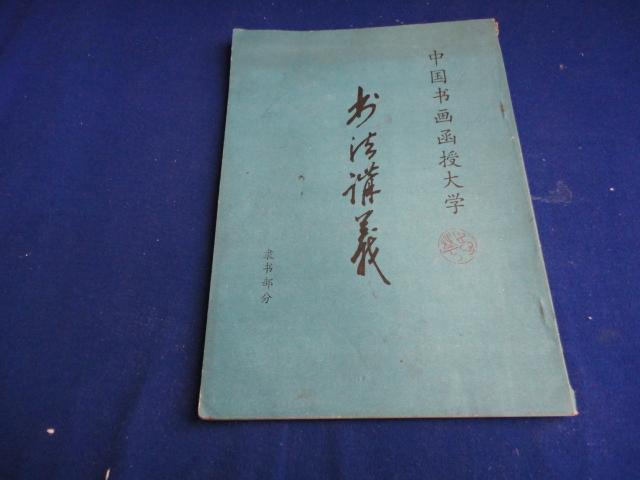 中国书画函授大学
书法講義
隶书部分